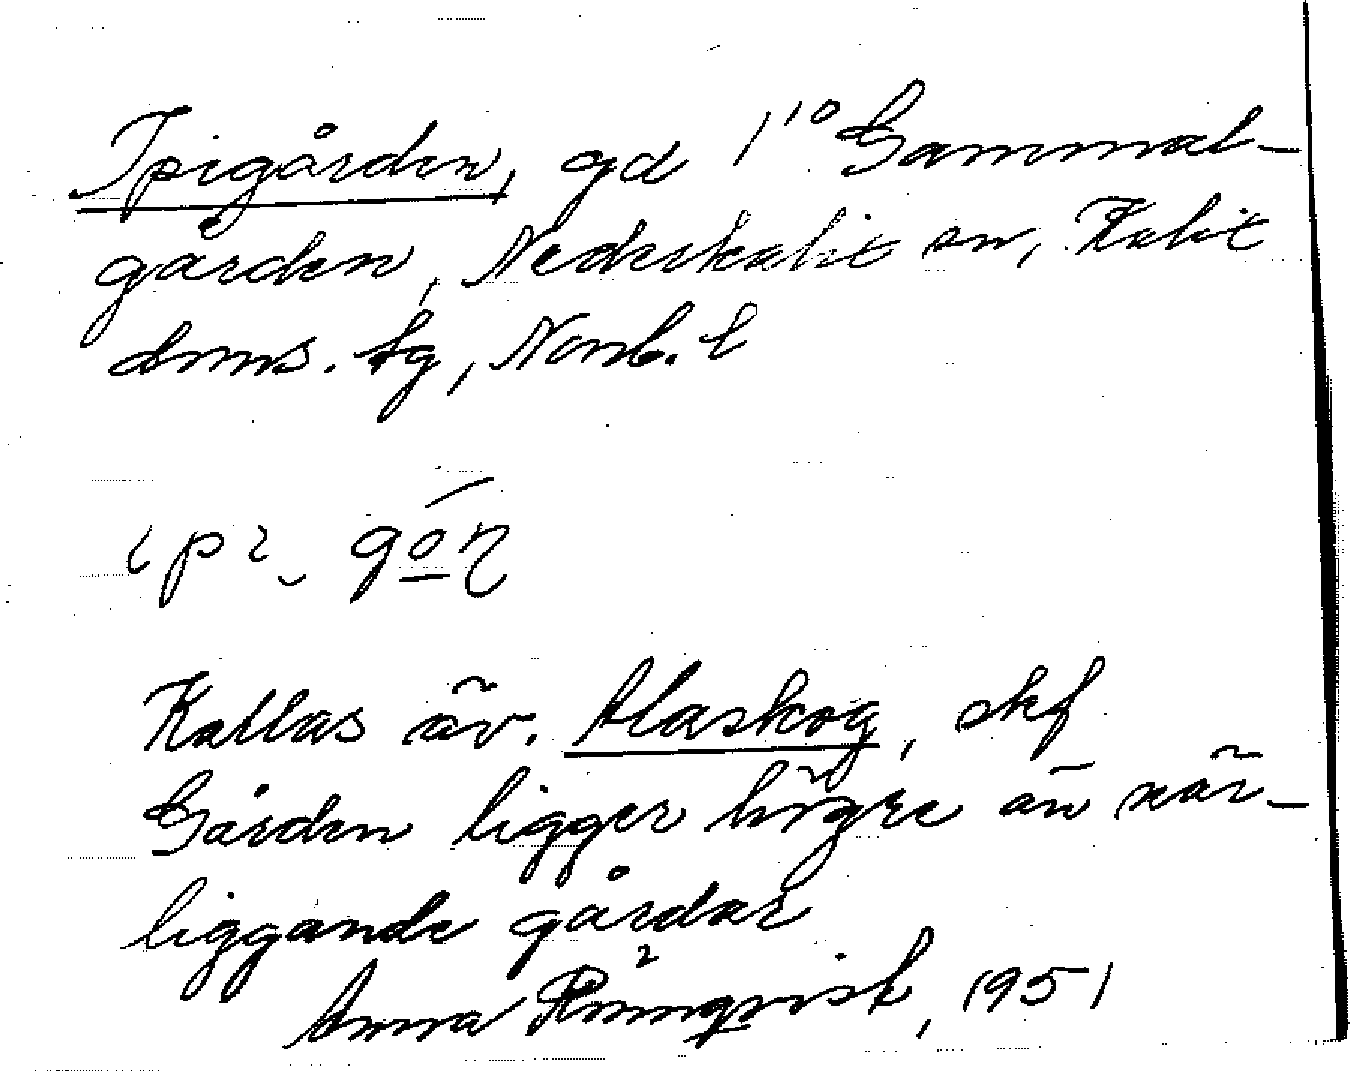 Ipigården, gd 1¹⁰ Gammal-
gården, Nederkalix sn, Kalix
doms. tg, Norrb. l
Kallas äv. Alaskog, skf
Gården ligger högre än när-
liggande gårdar
Anna Rönnqvist, 1951